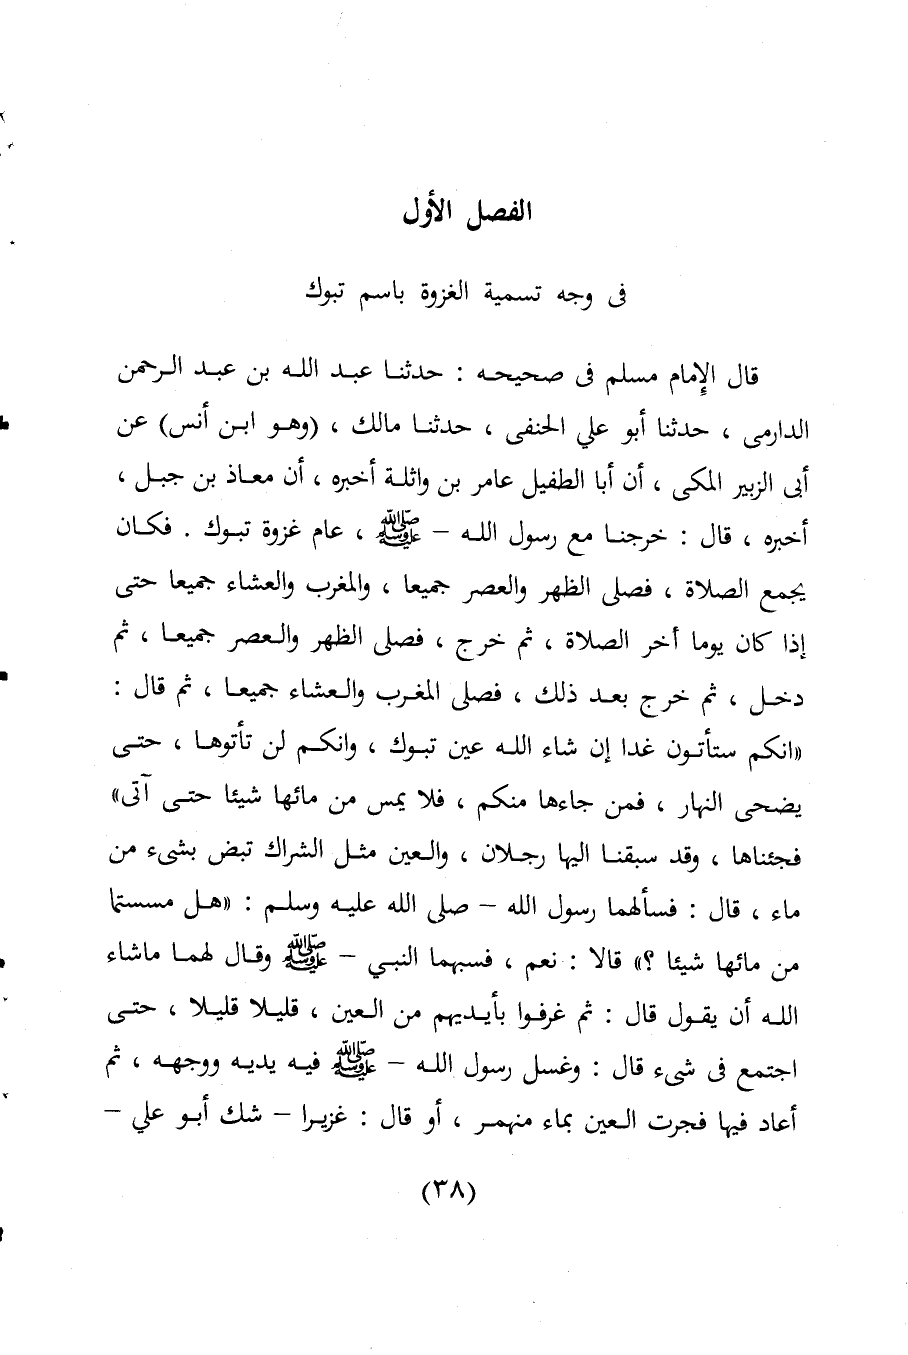 الفصل الأول
فى وجه تسمية الغزوة باسم تبوك
قال الإمام مسلم فى صحيحه : حدثنا عبد الله بن عبد الرحمن
الدارمى ، حدثنا أبو علي الحنفى ، حدثنا مالك ، (وهو ابن أنس) عن
أبى الزبير المكى ، أن أبا الطفيل عامر بن واثلة أخبره ، أن معاذ بن جبل ،
أخبره ، قال : خرجنا مع رسول الله – ﷺ ، عام غزوة تبوك . فكان
يجمع الصلاة ، فصلى الظهر والعصر جميعا ، والمغرب والعشاء جميعا حتى
إذا كان يوما أخر الصلاة ، ثم خرج ، فصلى الظهر والعصر جميعا ، ثم
دخل ، ثم خرج بعد ذلك ، فصلى المغرب والعشاء جميعا ، ثم قال :
«انكم ستأتون غدا إن شاء الله عين تبوك ، وانكم لن تأتوها ، حتى
يضحى النهار ، فمن جاءها منكم ، فلا يمس من مائها شيئا حتى آتى»
فجئناها ، وقد سبقنا اليها رجلان ، والعين مثل الشراك تبض بشىء من
ماء ، قال : فسألهما رسول الله – صلى الله عليه وسلم : «هل مسستما
من مائها شيئا ؟» قالا : نعم ، فسبهما النبي – ﷺ وقال لهما ماشاء
الله أن يقول قال : ثم غرفوا بأيديهم من العين ، قليلا قليلا ، حتى
اجتمع فى شىء قال : وغسل رسول الله – ﷺ فيه يديه ووجهه ، ثم
أعاد فيها فجرت العين بماء منهمر ، أو قال : غزيرا – شك أبو علي –
(٣٨)